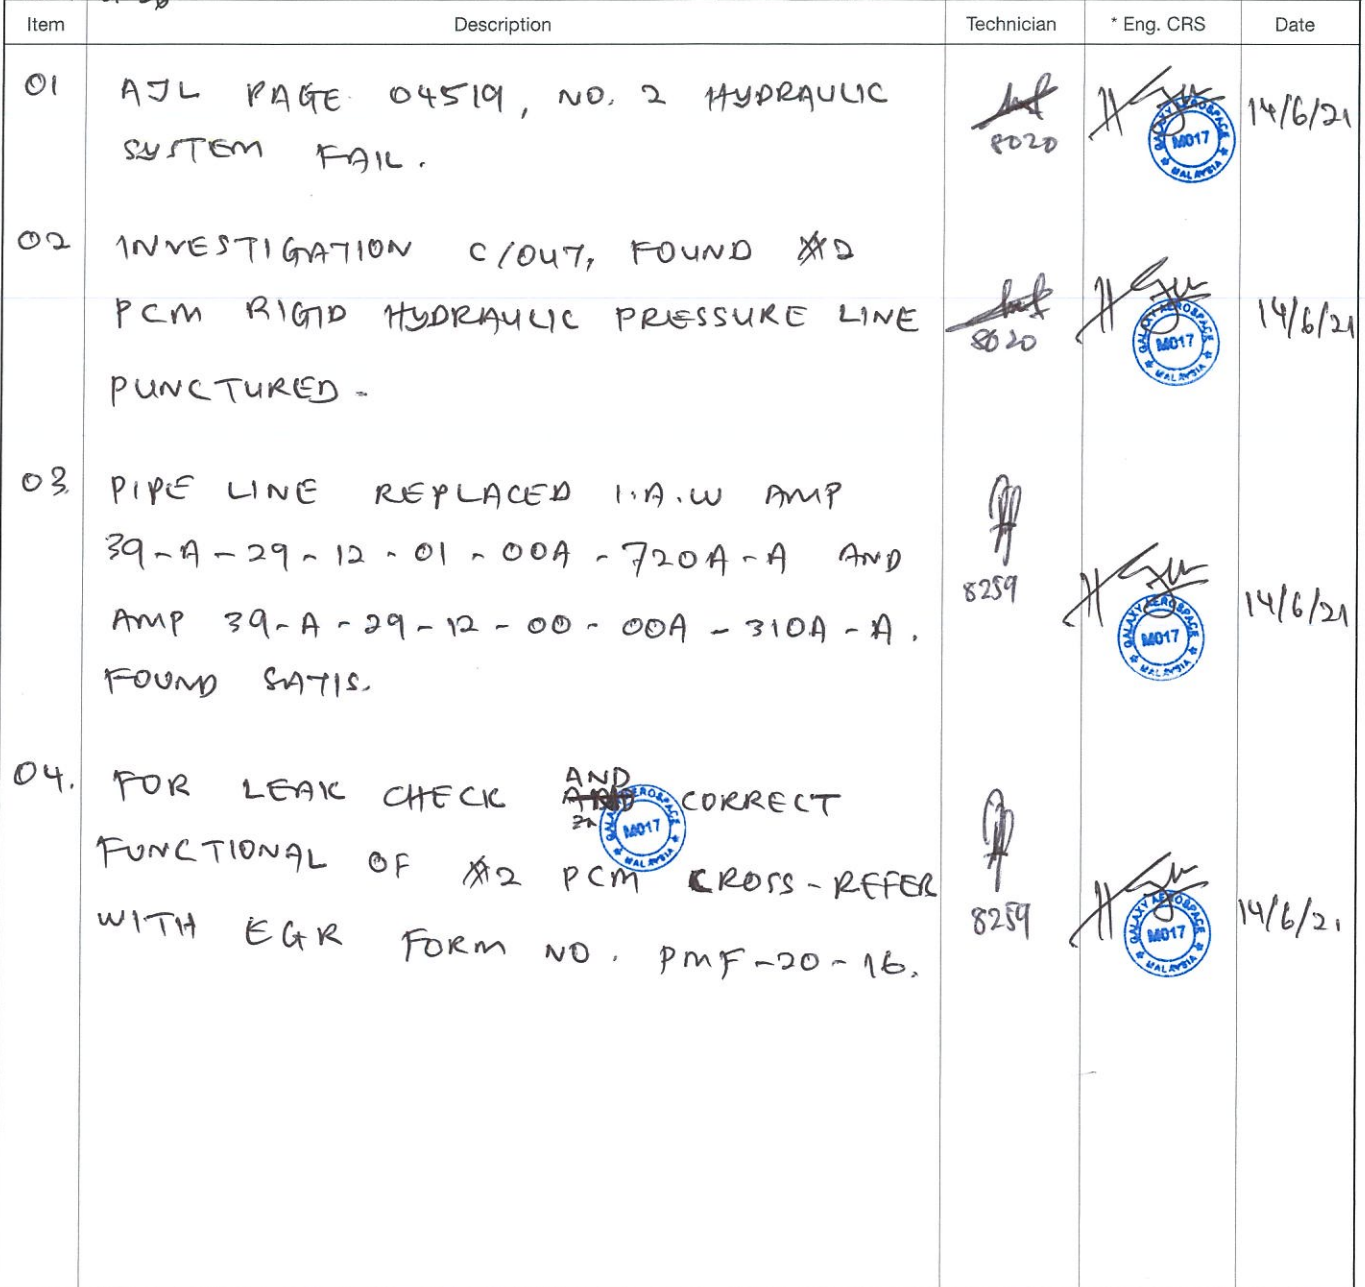 Item Description Technician * Eng. CRS Date
01 AJL PAGE 04519, NO. 2 HYDRAULIC 14/6/21
SYSTEM FAIL. 8020
GALAXY AEROSPACE M017 MALAYSIA
02 INVESTIGATION C/OUT, FOUND #2
PCM RIGID HYDRAULIC PRESSURE LINE 8020 14/6/21
GALAXY AEROSPACE M017 MALAYSIA
PUNCTURED.
03. PIPE LINE REPLACED I.A.W AMP
39-A-29-12-01-00A-720A-A AND 8259 14/6/21
AMP 39-A-29-12-00-00A-310A-A.
GALAXY AEROSPACE M017 MALAYSIA
FOUND SATIS.
04. FOR LEAK CHECK AND CORRECT
GALAXY AEROSPACE M017 MALAYSIA
FUNCTIONAL OF #2 PCM CROSS-REFER
WITH EGR FORM NO. PMF-20-16. 8259 14/6/21
GALAXY AEROSPACE M017 MALAYSIA